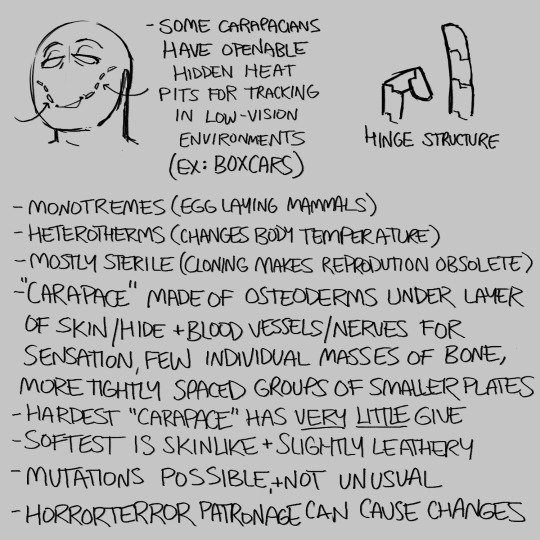 - SOME CARAPACIANS
HAVE OPENABLE
HIDDEN HEAT
PITS FOR TRACKING
IN LOW-VISION
ENVIRONMENTS
(EX: BOXCARS)
HINGE STRUCTURE
- MONOTREMES (EGG LAYING MAMMALS)
- HETEROTHERMS (CHANGES BODY TEMPERATURE)
- MOSTLY STERILE (CLONING MAKES REPRODUTION OBSOLETE)
- "CARAPACE" MADE OF OSTEODERMS UNDER LAYER
OF SKIN/HIDE + BLOOD VESSELS/NERVES FOR
SENSATION, FEW INDIVIDUAL MASSES OF BONE,
MORE TIGHTLY SPACED GROUPS OF SMALLER PLATES
- HARDEST "CARAPACE" HAS VERY LITTLE GIVE
- SOFTEST IS SKINLIKE + SLIGHTLY LEATHERY
- MUTATIONS POSSIBLE, + NOT UNUSUAL
- HORRORTERROR PATRONAGE CAN CAUSE CHANGES